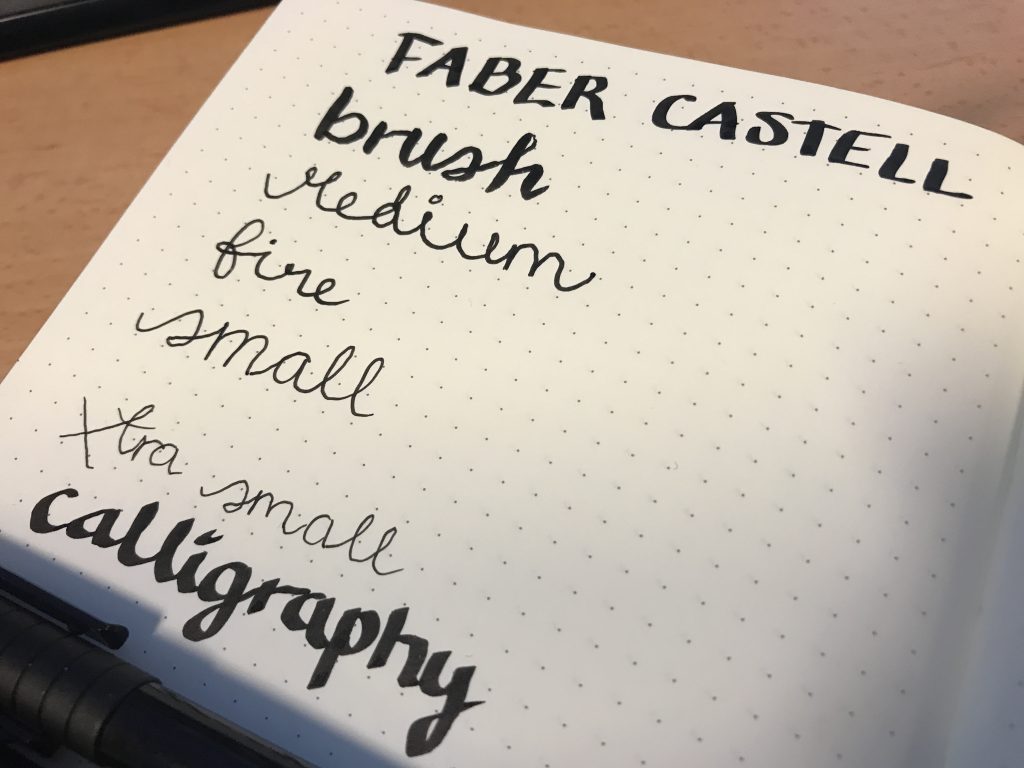 FABER CASTELL
brush
medium
fine
small
Xtra small
calligraphy